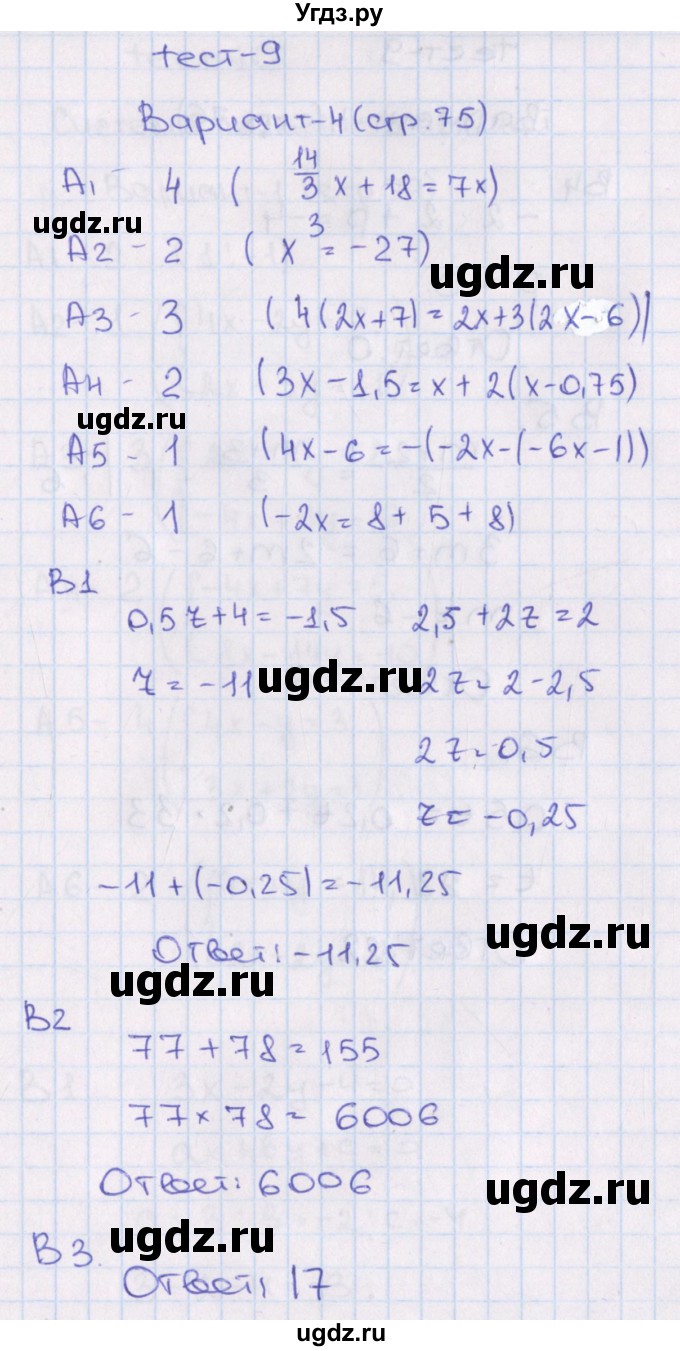 Угдз.ру
тест-9
Вариант-4 (стр.75)
A1 - 4 ( 14/3 x + 18 = 7x)
ugdz.ru
A2 - 2 ( x³ = -27)
ugdz.ru
A3 - 3 ( 4(2x+7) = 2x+3(2x-6))
A4 - 2 (3x-1,5=x+2(x-0,75)
ugdz.ru
A5 - 1 (4x-6=-(-2x-(-6x-1))
A6 - 1 (-2x = 8+ 5+8)
B1
0,5z+4=-1,5 2,5+2z=2
z = -11 ugdz.ru 2z = 2-2,5
2z = 0,5
z = -0,25
-11+(-0,25)=-11,25
ugdz.ru
Ответ: -11,25
ugdz.ru
B2
77+78=155
77×78= 6006
Ответ: 6006
ugdz.ru
B3.
ugdz.ru
Ответ: 17
ugdz.ru